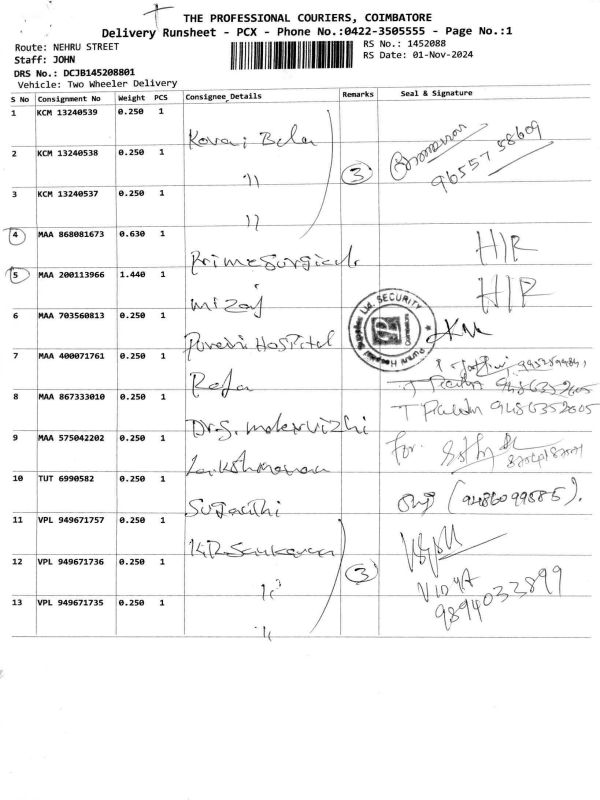 THE PROFESSIONAL COURIERS, COIMBATORE
Delivery Runsheet - PCX - Phone No.:0422-3505555 - Page No.:1
Route: NEHRU STREET
RS No.: 1452088
Staff: JOHN
RS Date: 01-Nov-2024
DRS No.: DCJB145208801
Vehicle: Two Wheeler Delivery
S No Consignment No Weight PCS Consignee Details Remarks Seal & Signature
1 KCM 13240539 0.250 1 Kovai Bela
2 KCM 13240538 0.250 1 11 3 96557 58609
3 KCM 13240537 0.250 1 11
4 MAA 868081673 0.630 1 Prime Surgicals H/R
5 MAA 200113966 1.440 1 Mizaj H/R
6 MAA 703560813 0.250 1 Purani Hospital
Purani Hospital Supplies Ltd. SECURITY Coimbatore
7 MAA 400071761 0.250 1 Raja
8 MAA 867333010 0.250 1 Dr.S. 9486352005
9 MAA 575042202 0.250 1 Lakshmanan For.
10 TUT 6990582 0.250 1 (9486099885).
11 VPL 949671757 0.250 1 K.R.Sankaran
12 VPL 949671736 0.250 1 3 VIDYA
13 VPL 949671735 0.250 1 9894033899